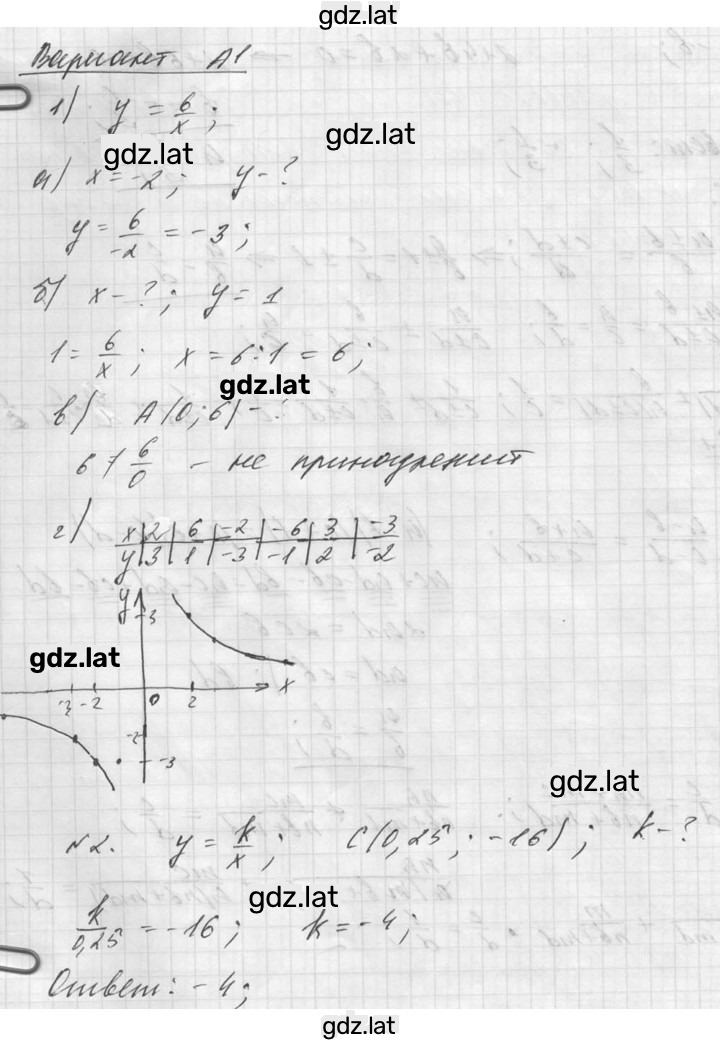 gdz.lat
Вариант А1
1) y = 6/x;
gdz.lat
gdz.lat
а) x = -2; y - ?
y = 6/-2 = -3;
б) x - ?; y = 1
1 = 6/x; x = 6:1 = 6;
gdz.lat
в) A(0;6) - ?
6 ≠ 6/0 - не принадлежит
г) x | 2 | 6 | -2 | -6 | 3 | -3
y | 3 | 1 | -3 | -1 | 2 | -2
y
3
gdz.lat
x
-3 -2 0 2
-2
-3
gdz.lat
№2. y = k/x; C(0,25; -16); k - ?
gdz.lat
k/0,25 = -16; k = -4;
Ответ: -4;
gdz.lat